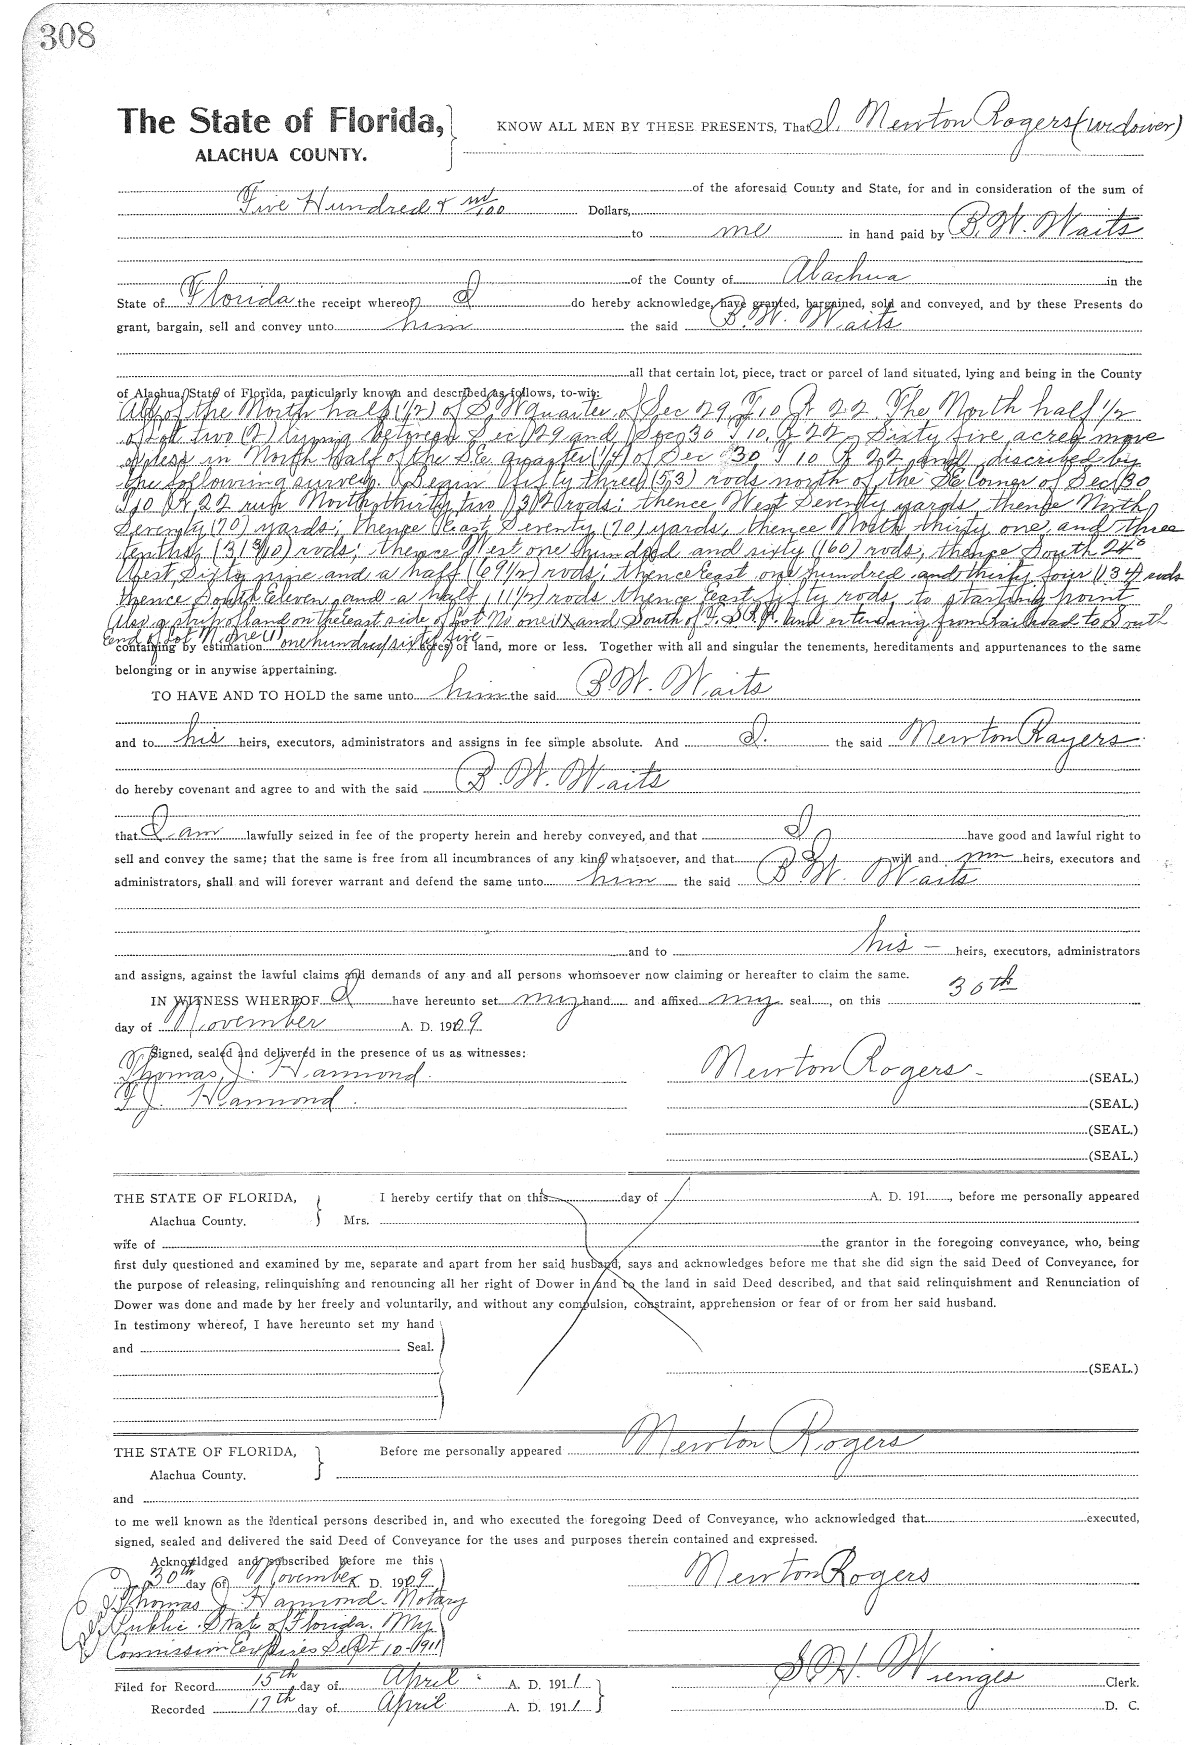 308
The State of Florida,
ALACHUA COUNTY.
KNOW ALL MEN BY THESE PRESENTS, That I, Newton Rogers (widower)
of the aforesaid County and State, for and in consideration of the sum of
Five Hundred & no/100 Dollars,
to me in hand paid by B. W. Waits
of the County of Alachua in the
State of Florida the receipt whereof I do hereby acknowledge, have granted, bargained, sold and conveyed, and by these Presents do
grant, bargain, sell and convey unto him the said B. W. Waits
all that certain lot, piece, tract or parcel of land situated, lying and being in the County
of Alachua, State of Florida, particularly known and described as follows, to-wit:
All of the North half (1/2) of S. W quarter of Sec 29, T 10 R 22. The North half 1/2
of Lot two (2) liying between Sec 29 and Sec 30 T 10, R 22, Sixty five acres more
or less in North half of the S.E. quarter (1/4) of Sec 30 T 10 R 22 and discribed by
the following survey. Begin fifty three (53) rods north of the S.E Corner of Sec 30
T 10 R 22 run North thirty two (32) rods; thence West Seventy yards, thence North
Seventy (70) yards; thence East Seventy (70) yards, thence North thirty one and three
tenths (31 3/10) rods; thence West one hundred and sixty (160) rods; thence South 24°
West Sixty nine and a half (69 1/2) rods; thence East one hundred and thirty four (134) rods
thence South Eleven and a half (11 1/2) rods thence East fifty rods to starting point
Also a strip of land on the East side of Lot No one (1) and South of F. S. R.R. and extending from railroad to South
End of Lot N. one (1)
containing by estimation one hundred sixty five - acres of land, more or less. Together with all and singular the tenements, hereditaments and appurtenances to the same
belonging or in anywise appertaining.
TO HAVE AND TO HOLD the same unto him the said B. W. Waits
and to his heirs, executors, administrators and assigns in fee simple absolute. And I. the said Newton Rogers
do hereby covenant and agree to and with the said B. W. Waits
that I am lawfully seized in fee of the property herein and hereby conveyed, and that I have good and lawful right to
sell and convey the same; that the same is free from all incumbrances of any kind whatsoever, and that I will and my heirs, executors and
administrators, shall and will forever warrant and defend the same unto him the said B. W. Waits
and to his - heirs, executors, administrators
and assigns, against the lawful claims and demands of any and all persons whomsoever now claiming or hereafter to claim the same.
IN WITNESS WHEREOF I have hereunto set my hand and affixed my seal, on this 30th
day of November A. D. 1909
Signed, sealed and delivered in the presence of us as witnesses:
Thomas J. Hammond.
F J. Hammond.
Newton Rogers - (SEAL.)
(SEAL.)
(SEAL.)
(SEAL.)
THE STATE OF FLORIDA,
Alachua County.
I hereby certify that on this day of A. D. 191, before me personally appeared
Mrs.
wife of the grantor in the foregoing conveyance, who, being
first duly questioned and examined by me, separate and apart from her said husband, says and acknowledges before me that she did sign the said Deed of Conveyance, for
the purpose of releasing, relinquishing and renouncing all her right of Dower in and to the land in said Deed described, and that said relinquishment and Renunciation of
Dower was done and made by her freely and voluntarily, and without any compulsion, constraint, apprehension or fear of or from her said husband.
In testimony whereof, I have hereunto set my hand
and Seal.
(SEAL.)
THE STATE OF FLORIDA,
Alachua County.
Before me personally appeared Newton Rogers
and
to me well known as the identical persons described in, and who executed the foregoing Deed of Conveyance, who acknowledged that executed,
signed, sealed and delivered the said Deed of Conveyance for the uses and purposes therein contained and expressed.
Acknowldged and subscribed before me this
30th day of November A. D. 1909
Newton Rogers
Thomas J. Hammond - Notary
Public State of Florida. My
Commission Expires Sept 10-1911
Filed for Record 15th day of April A. D. 1911
S H. Wienges Clerk.
Recorded 17th day of April A. D. 1911
D. C.